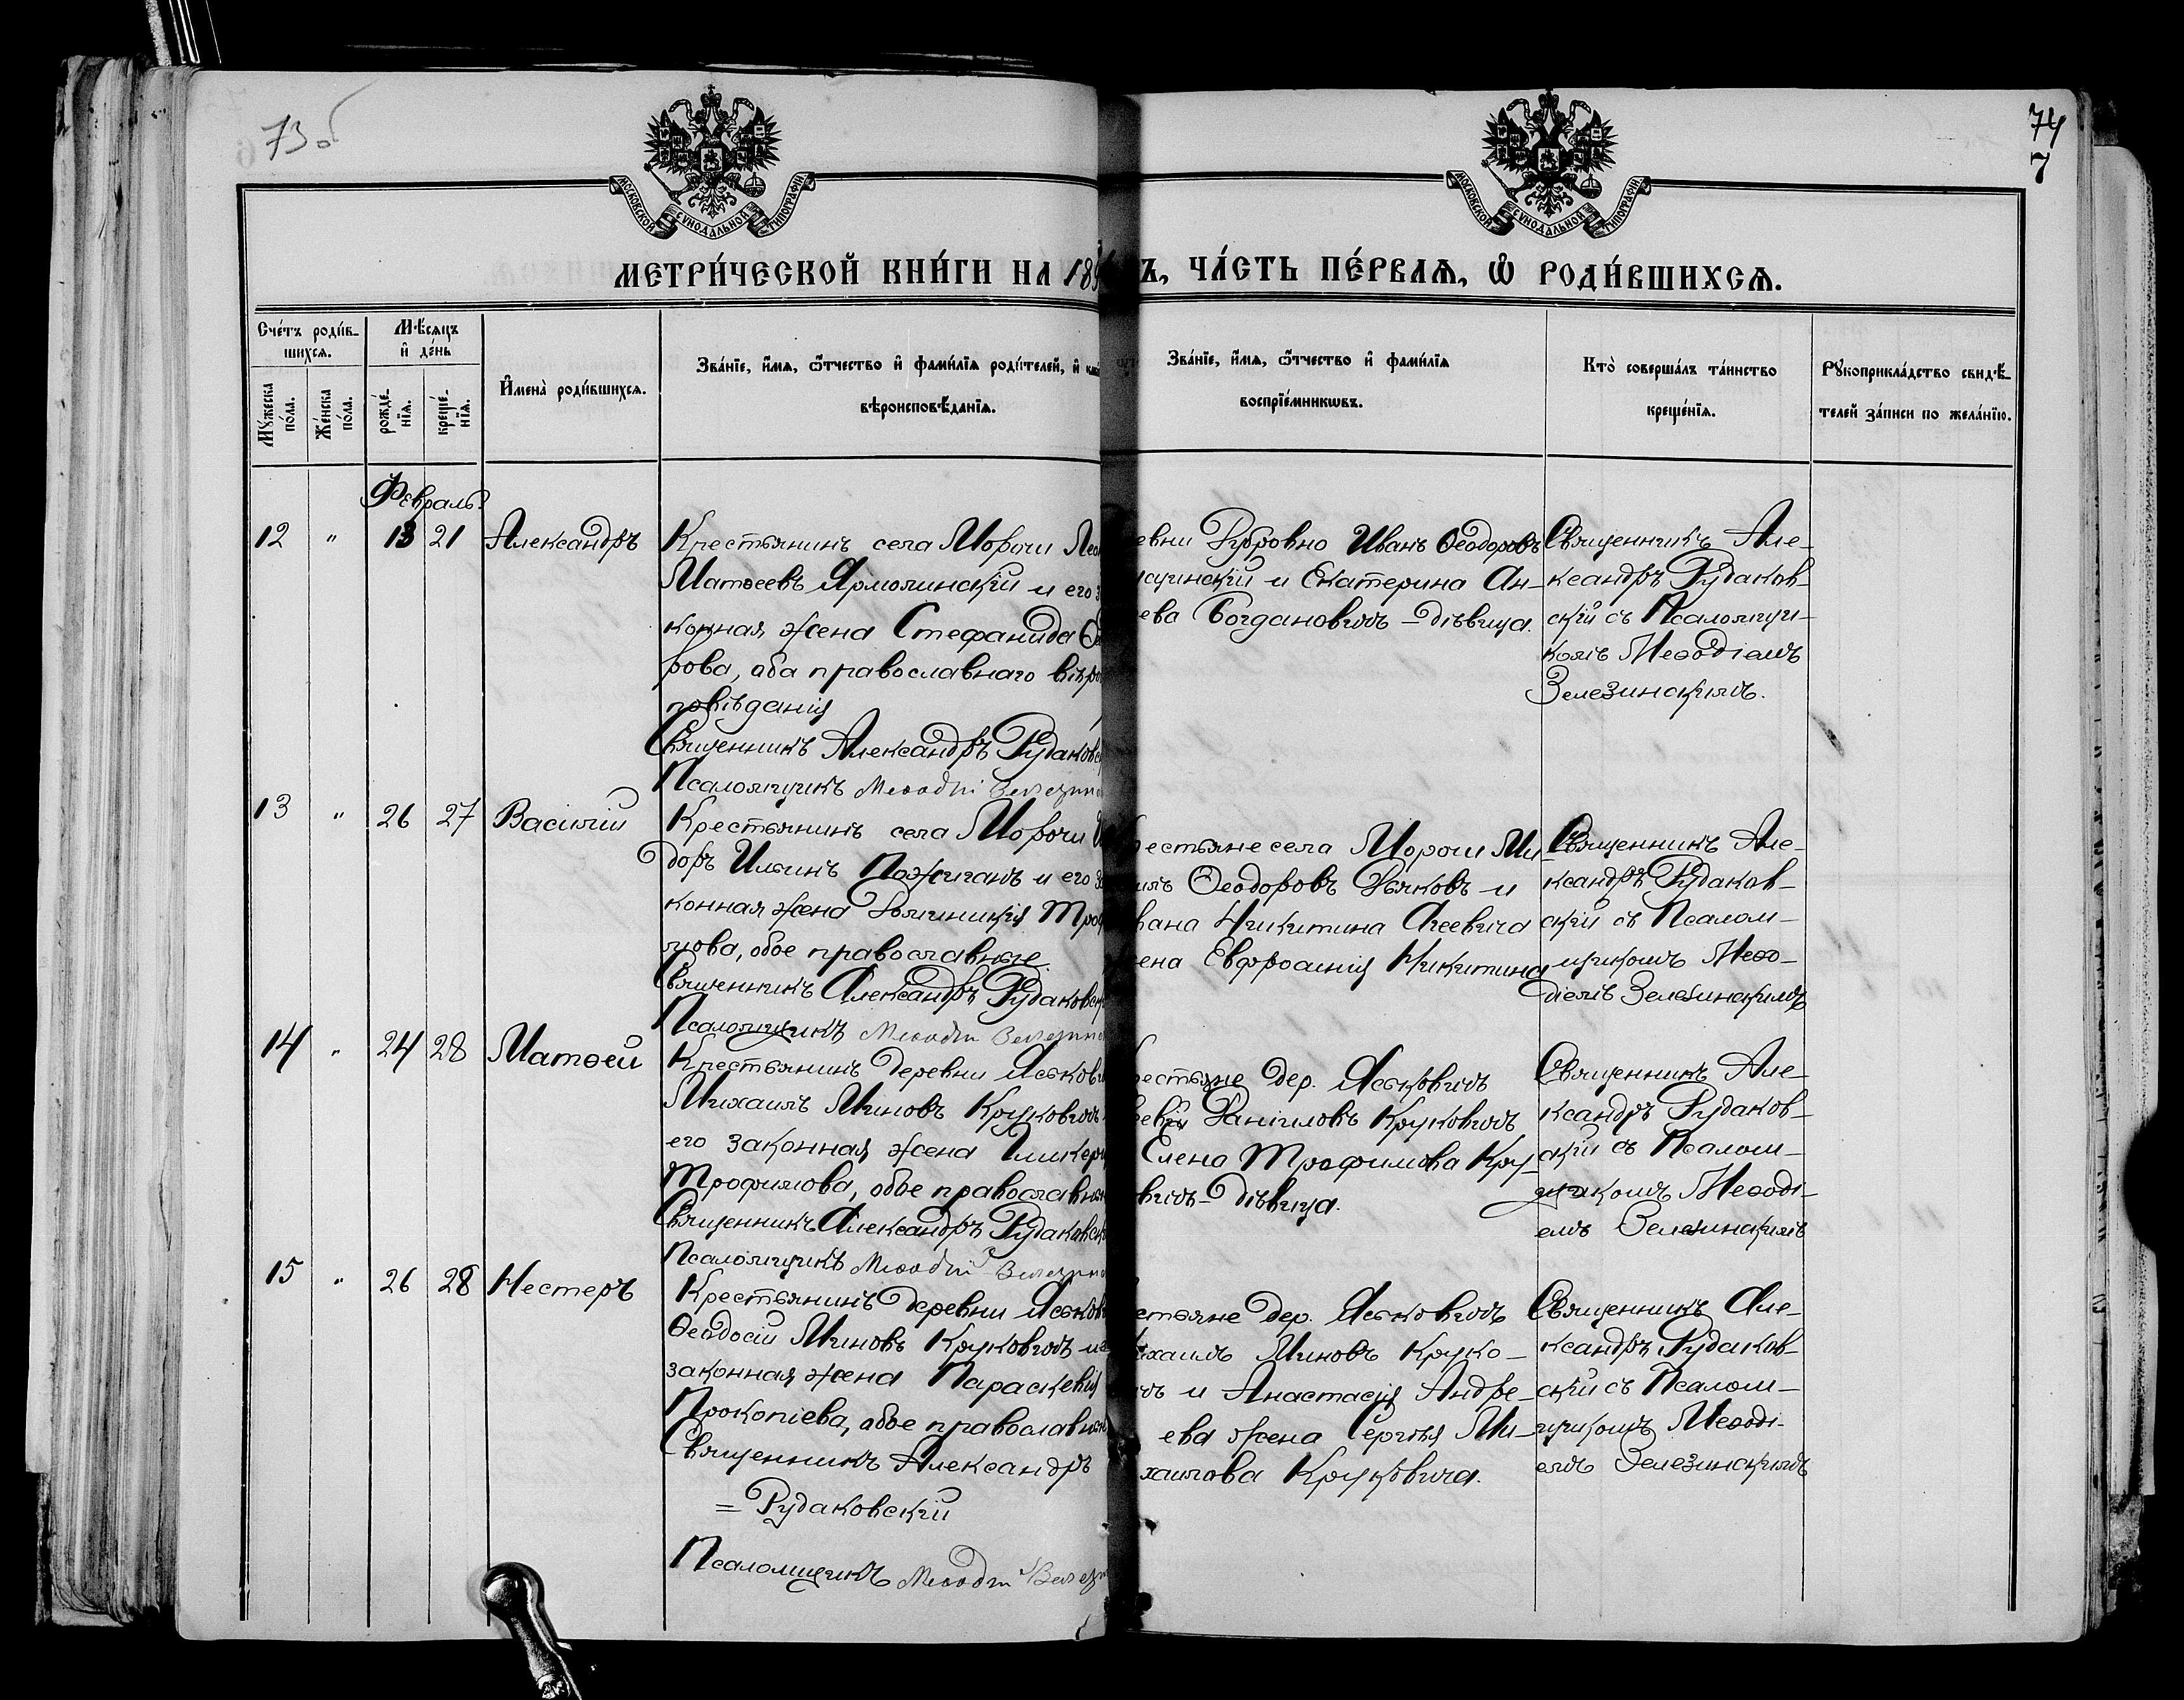 73 об
74
7
МОСКОВСКОЙ СѴНОДАЛЬНОЙ ТИПОГРАФІИ
МОСКОВСКОЙ СѴНОДАЛЬНОЙ ТИПОГРАФІИ
МЕТРИ́ЧЕСКОЙ КНИ́ГИ НА 189
Ъ, ЧА́СТЬ ПЕ́РВАѦ, Ѡ РОДИ́ВШИХСѦ.
Сче́тъ роди́в-
шихсѧ.
Мѣ́сѧцъ
и҆ де́нь
Мꙋ́жеска
по́ла.
Же́нска
по́ла.
рожде́-
нїѧ.
креще́-
нїѧ.
И҆мена̀ роди́вшихсѧ.
Зва́нїе, и҆́мѧ, ѻ҆́тчество и҆ фами́лїѧ роди́телей, и҆
вѣроисповѣ́данїѧ.
Зва́нїе, и҆́мѧ, ѻ҆́тчество и҆ фами́лїѧ
воспрїе́мникѡвъ.
Кто̀ соверша́лъ та́инство
креще́нїѧ.
Рꙋкоприкла́дство свидѣ́-
телей за́писи по жела́нїю.
Февраль
12 " 13 21 Александръ
Крестьянинъ села Морочи
Матѳеевъ Ярмолинскій и его з
конная жена Стефанида Ѳе
рова, оба православнаго вѣро
повѣданія
Священникъ Александръ Рудаковс
Псаломщикъ Меѳодій Зелезин
евни Иванъ Ѳеодоровъ
и Екатерина Ан-
ева Богдановичъ – дѣвица.
Священникъ Але-
ксандръ Рудаков-
скій съ Псаломщи-
комъ Меѳодіемъ
Зелезинскимъ.
13 " 26 27 Василій
Крестьянинъ села Морочи
доръ Ильинъ Пожиганъ и его за
конная жена Троф
мова, обое православные.
Священникъ Александръ Рудаковск
Псаломщикъ Меѳодій Зелезин
естьяне села Морочи Ми-
илъ Ѳеодоровъ Дьяковъ и
вана Никитина
ена Евфросинія Никитина
Священникъ Але-
ксандръ Рудаков-
скій съ Псалом-
щикомъ Меѳо-
діемъ Зелезинскимъ
14 " 24 28 Матѳей
Крестьянинъ деревни Яськови
Михаилъ Миновъ Круковичъ
его законная жена Гликер
Трофимова, обое православны
Священникъ Александръ Рудаковск
Псаломщикъ Меѳодій Зелезин
естьяне дер. Яськовичъ
Даніиловъ Круковичъ
Елена Трофимова Кру-
вичъ – дѣвица.
Священникъ Але-
ксандръ Рудаков-
скій съ Псалом-
щикомъ Меѳоді-
емъ Зелезинскимъ
15 " 26 28 Нестеръ
Крестьянинъ деревни Яськов
Ѳеодосій Миновъ Круковичъ и е
законная жена Параскевія
Прокопіева, обое православны
Священникъ Александръ
= Рудаковскій
Псаломщикъ Меѳодій Зелез
стьяне дер. Яськовичъ
ихаилъ Миновъ Круко-
чъ и Анастасія Андре-
ева жена Сергія Ми-
хаилова Круковича.
Священникъ Але-
ксандръ Рудаков-
скій съ Псалом-
щикомъ Меѳоді-
емъ Зелезинскимъ